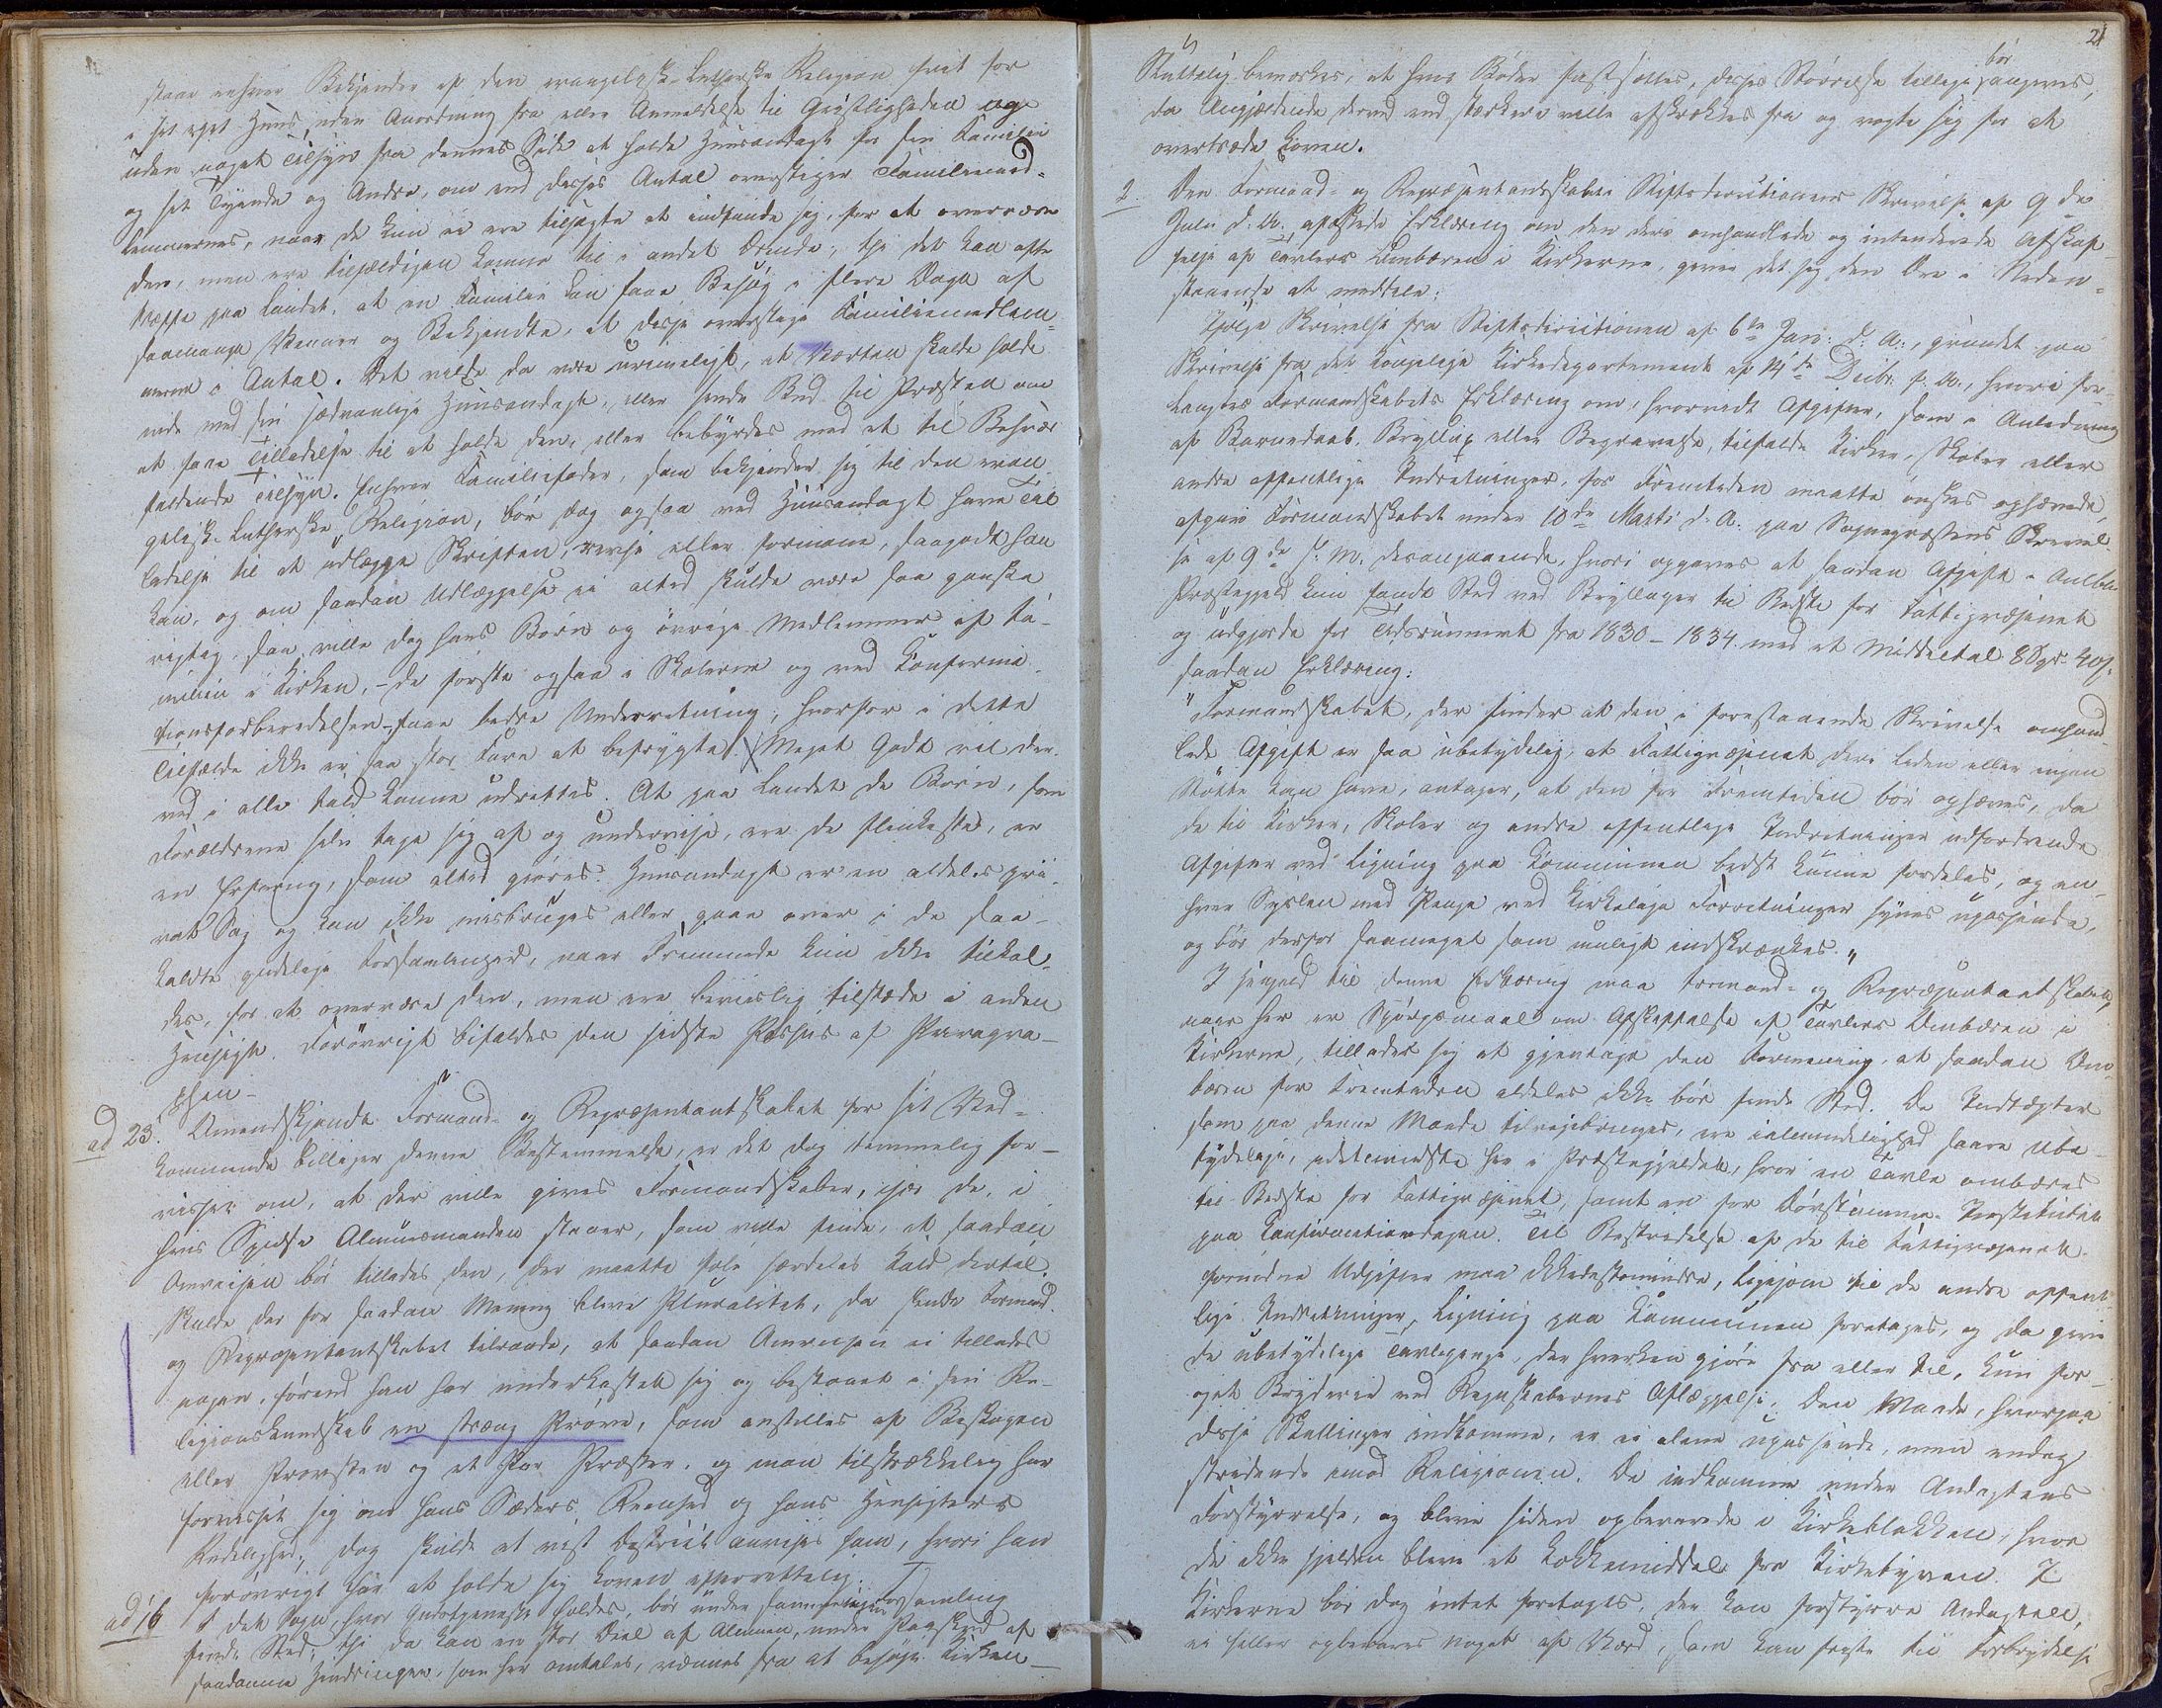 staar enhver Bekjender af den evangelisk-Lutherske Religion frit for
i sit eget Huus, uden Anordning fra eller Anmeldelse til Geistligheden og
uden noget Tilsyn fra dennes Side at holde Huusandagt for sin Familie
og sit Tyende og Andre, om end disses Antal overstiger Familiemed-
lemmernes, naar de kun ei ere tilsagte at indfinde sig, for at overvære
den, men ere tilfældigen komne til i andet Ærinde; thi det kan ofte
træffe paa Landet, at en Familie kan faae Besøg i flere Dage af
saamange Venner og Bekjendte, at disse overstige Familiemedlem-
merne i Antal. Det vilde da være urimeligt, at Værten skulde holde
inde med sin sædvanlige Huusandagt, eller sende Bud til Præsten om
at faae Tilladelse til at holde den, eller bebyrdes med et til Besvær
faldende Tilsyn. Enhver Familiefader, som bekjender sig til den evan-
gelisk-Lutherske Religion, bør dog ogsaa ved Huusandagt have Til
ladelse til at udlægge Skriften, revse eller formane, saagodt han
kan, og om saadan Udlæggelse ei altid skulde være saa ganske
rigtig, saa ville dog hans Børn og øvrige Medlemmer af Fa-
milien i Kirken, - de første ogsaa i Skolerne og ved Konfirma-
tionsforberedelsen - faae bedre Underretning, hvorfor i dette
Tilfælde ikke er saa stor Fare at befrygte. Meget Godt vil der-
ved i alle Fald kunne udrettes. At paa Landet de Børn, som
Forældrene selv tage sig af og undervise, ere de flinkeste, er
en Erfaring, som altid gjøres. Huusandagt er en aldeles pri-
vat Sag og kan ikke misbruges eller gaae over i de saa-
kaldte gudelige Forsamlinger, naar Fremmede kun ikke tilkal-
des, for at overvære den, men ere beviislig tilstæde i anden
Hensigt. Forøvrigt bifaldes den sidste Passus af Paragra-
phen-
ad 23. Omendskjøndt Formand- og Repræsentantskabet for sit Ved-
kommende billiger denne Bestemmelse, er det dog temmelig for-
visset om, at der ville gives Formandskaber, især de, i
hvis Spidse Almuesmanden staaer, som ville finde, at saadan
Omreisen bør tillades den, der maatte føle særdeles Kald dertil.
Skulde der for saadan Mening blive Pluralitet, da skulde Formand-
og Repræsentantskabet tilraade, at saadan Omreisen ei tillades
nogen, førend han har underkastet sig og bestaaet i sin Re-
ligionskundskab en streng Prøve, som anstilles af Biskopen
eller Provsten og et Par Præster, og man tilstrækkelig har
forvisset sig om hans Sæders Reenhed og hans Hensigters
Redelighed; dog skulde et vist District anvises ham, hvori han
forøvrigt har at holde sig Loven efterrettelig.
ad 16 I det Sogn, hvor Gudstjeneste holdes, bør under samme ingen Forsamling
finde Sted, thi da kan en stor Deel af Almuen, under Paaskud af
saadanne Hindringer, som her omtales, vænnes fra at besøge Kirken-
21
Sluttelig bemærkes, at hvor Bøder fastsættes, disses Størrelse tillige bør angives,
da Angjældende derved end stærkere ville afskrækkes fra og vogte sig for at
overtræde Loven.
2. Den Formand- og Repræsentantskabet Stiftsdirectionens Skrivelse af 9de
Juli d. A. afæskede Erklæring om den deri omhandlede og intenderede Afskaf-
felse af Tavlers Ombæren i Kirkerne, giver det sig den Ære i Neden-
staaende at meddele:
Ifølge Skrivelse fra Stiftsdirectionen af 6te Janr. d. A., grundet paa
Skrivelse fra det Kongelige Kirkedepartement af 14de Decbr. f. A., hvori for-
langtes Formandskabets Erklæring om, hvorvidt Afgifter, som i Anledning
af Barnedaab, Bryllup eller Begravelse, tilfalde Kirker, Skoler eller
andre offentlige Indretninger, for Fremtiden maatte ønskes ophævede,
afgav Formandskabet under 10de Marts d. A. paa Sognepræstens Skrivel-
se af 9de s. M. desangaaende, hvori opgaves at saadan Afgift i
Præstegjeld kun fandt Sted ved Bryllupper til Bedste for Fattigvæsenet
og udgjorde for Tidsrummet fra 1830-1834 med et Middeltal 8 Spd. 40 s.
saadan Erklæring:
"Formandskabet, der finder at den i forestaaende Skrivelse omhand-
lede Afgift er saa ubetydelig, at Fattigvæsenet deri liden eller ingen
Støtte kan have, antager, at den for Fremtiden bør ophæves, da
de til Kirker, Skoler og andre offentlige Indretninger udfordrende
Afgifter ved Ligning paa Kommunen bedst kunne fordeles, og en-
hver Syslen med Penge ved kirkelige Forretninger synes upassende,
og bør derfor saameget som muligt indskrænkes."
I Henhold til denne Erklæring maa Formand- og Repræsentantskabet,
naar her er Spørgsmaal om Afskaffelse af Tavlers Ombæren i
Kirkerne, tillade sig at gjentage den Formening, at saadan Om-
bæren for Fremtiden aldeles ikke bør finde Sted. De Indtægter
som paa denne Maade tilveiebringes, ere i almindelighed saare ube-
tydelige, idetmindste her i Præstegjeldet, hvor en Tavle ombæres
til Bedste for Fattigvæsenet, samt en for Døvstumme-Institutet
paa Konfirmationsdagen. Til Bestridelse af de til Fattigvæsenet
fornødne Udgifter maa ikkedestomindre, ligesom til de andre offent-
lige Indretninger, Ligning paa Kommunen foretages, og da give
de ubetydelige Tavlepenge, der hverken gjøre fra eller til, kun for-
øget Bryderie ved Regnskabernes Aflæggelse. Den Maade, hvorpaa
disse Skillinger indkomme, er ei alene upassende, men endog
stridende imod Religionen. De indkomme under Andagtens
Forstyrrelse, og blive siden opbevarede i Kirkeblokken, hvor
de ikke sjelden blive et Lokkemiddel for Kirketyven. I
Kirkerne bør dog intet foretages, der kan forstyrre Andagten,
ei heller opbevares noget af Værd, som kan friste til Forbrydelse